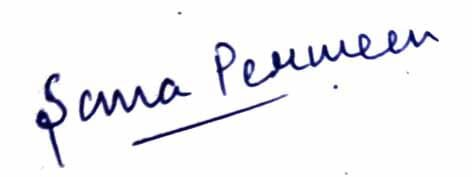 Sana Perween